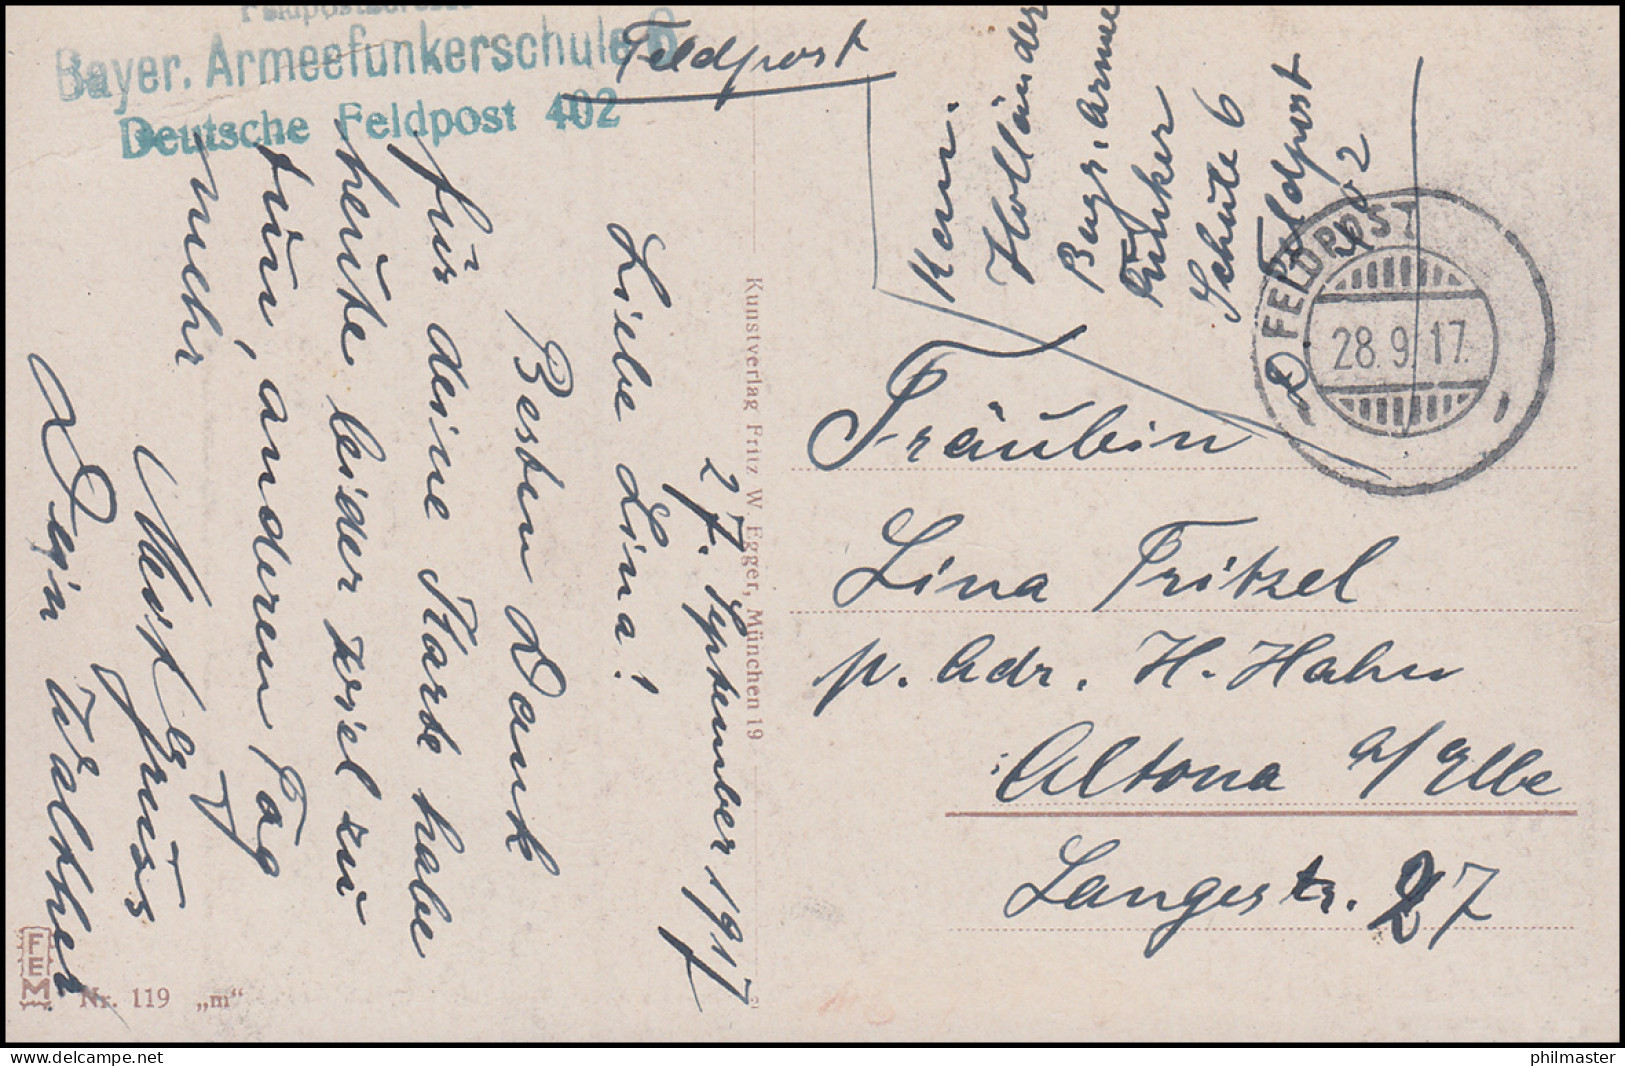 Bayer. Armeefunkerschule 6
Deutsche Feldpost 402
Feldpost
27. September 1917
Liebe Lina!
Besten Dank
für deine Karte habe
heute leider viel zu
tun, anderen Tag
mehr
Dein Walther
Kunstverlag Fritz W. Egger, München 19
FEM
Nr. 119 „m“
Holländer
Bayr. Arme
Funker
Schule 6
D. Feldpost
402
FELDPOST
28.9.17.
Fräulein
Lina Fritzel
p. Adr. H. Hahn
Altona a/Elbe
Langestr. 27
philmaster
delcampe.net